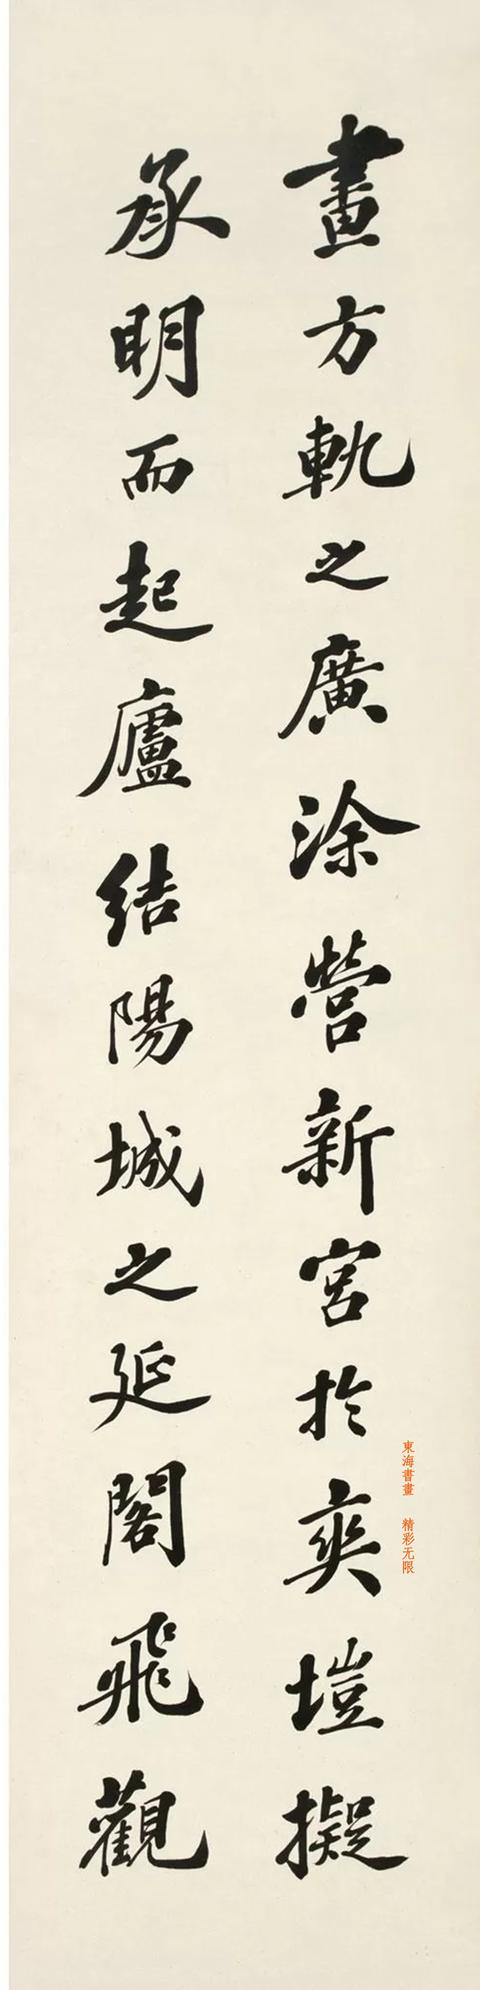 畫方軌之廣涂營新宮於爽塏擬
承明而起廬結陽城之延閣飛觀
東海書畫 精彩无限